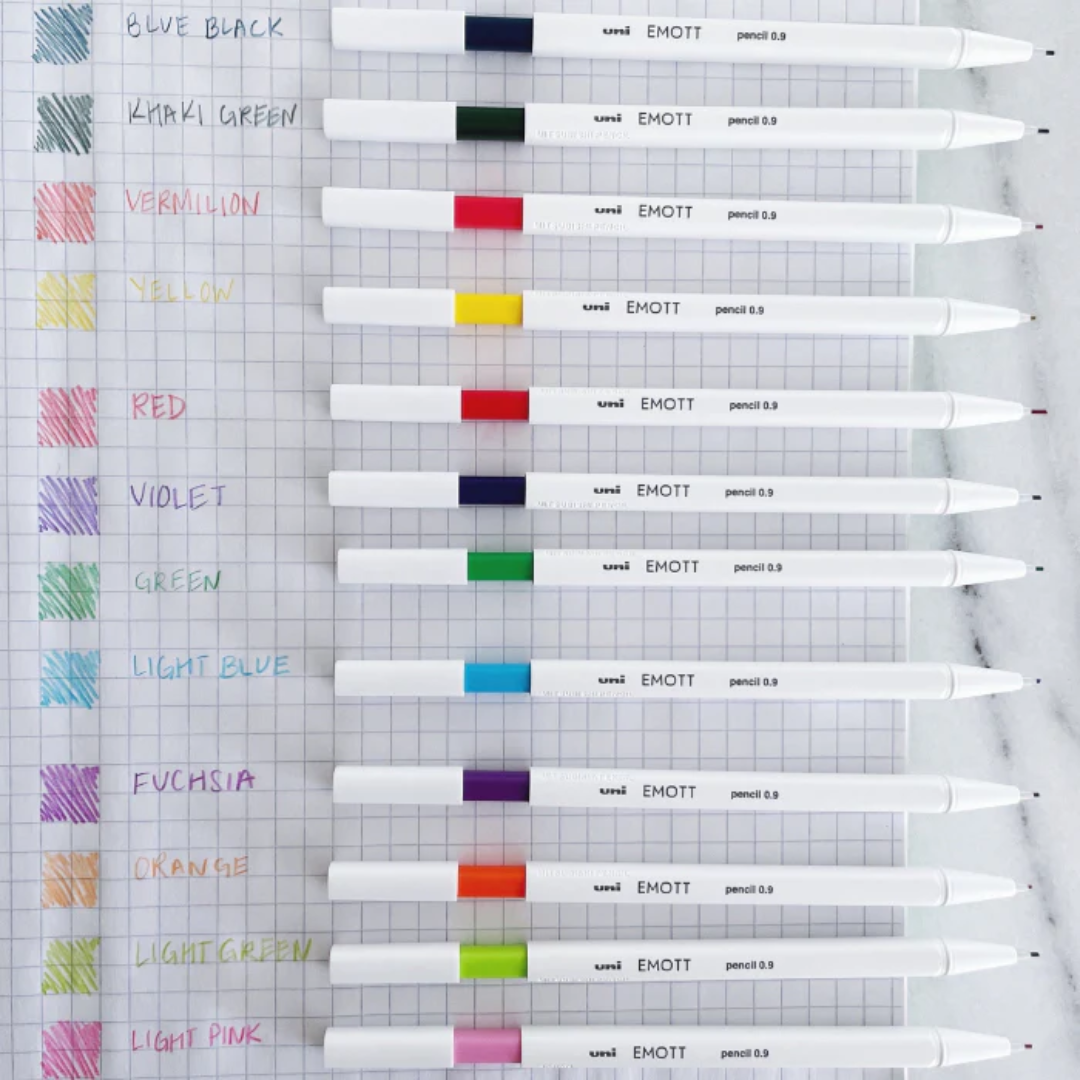 BLUE BLACK uni EMOTT pencil 0.9
KHAKI GREEN uni EMOTT pencil 0.9
MITSUBISHI PENCIL
VERMILION uni EMOTT pencil 0.9
MITSUBISHI PENCIL
YELLOW uni EMOTT pencil 0.9
RED uni EMOTT pencil 0.9
VIOLET uni EMOTT pencil 0.9
MITSUBISHI PENCIL
GREEN uni EMOTT pencil 0.9
LIGHT BLUE uni EMOTT pencil 0.9
FUCHSIA uni EMOTT pencil 0.9
ORANGE uni EMOTT pencil 0.9
LIGHT GREEN uni EMOTT pencil 0.9
LIGHT PINK uni EMOTT pencil 0.9